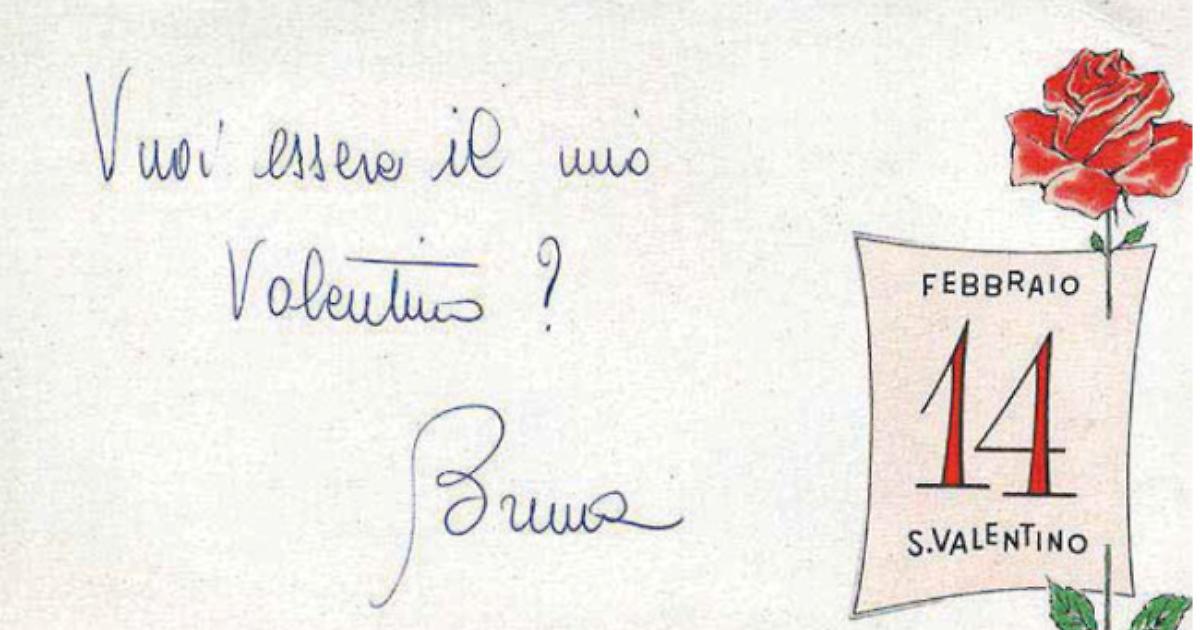 Vuoi essere il mio
Valentino ?
Bruna
FEBBRAIO
14
S.VALENTINO